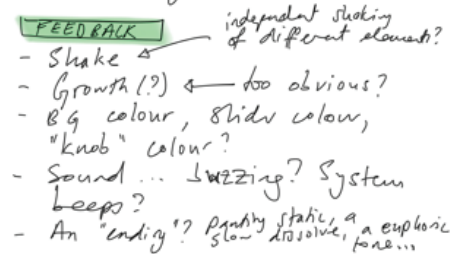 FEEDBACK
independent shaking
of different elements?
- Shake
- Growth (?) too obvious?
- BG colour, slider colour,
"knob" colour?
- Sound ... buzzing? System
beeps?
- An "ending"? static, a
slow dissolve, a euphoric
tone...